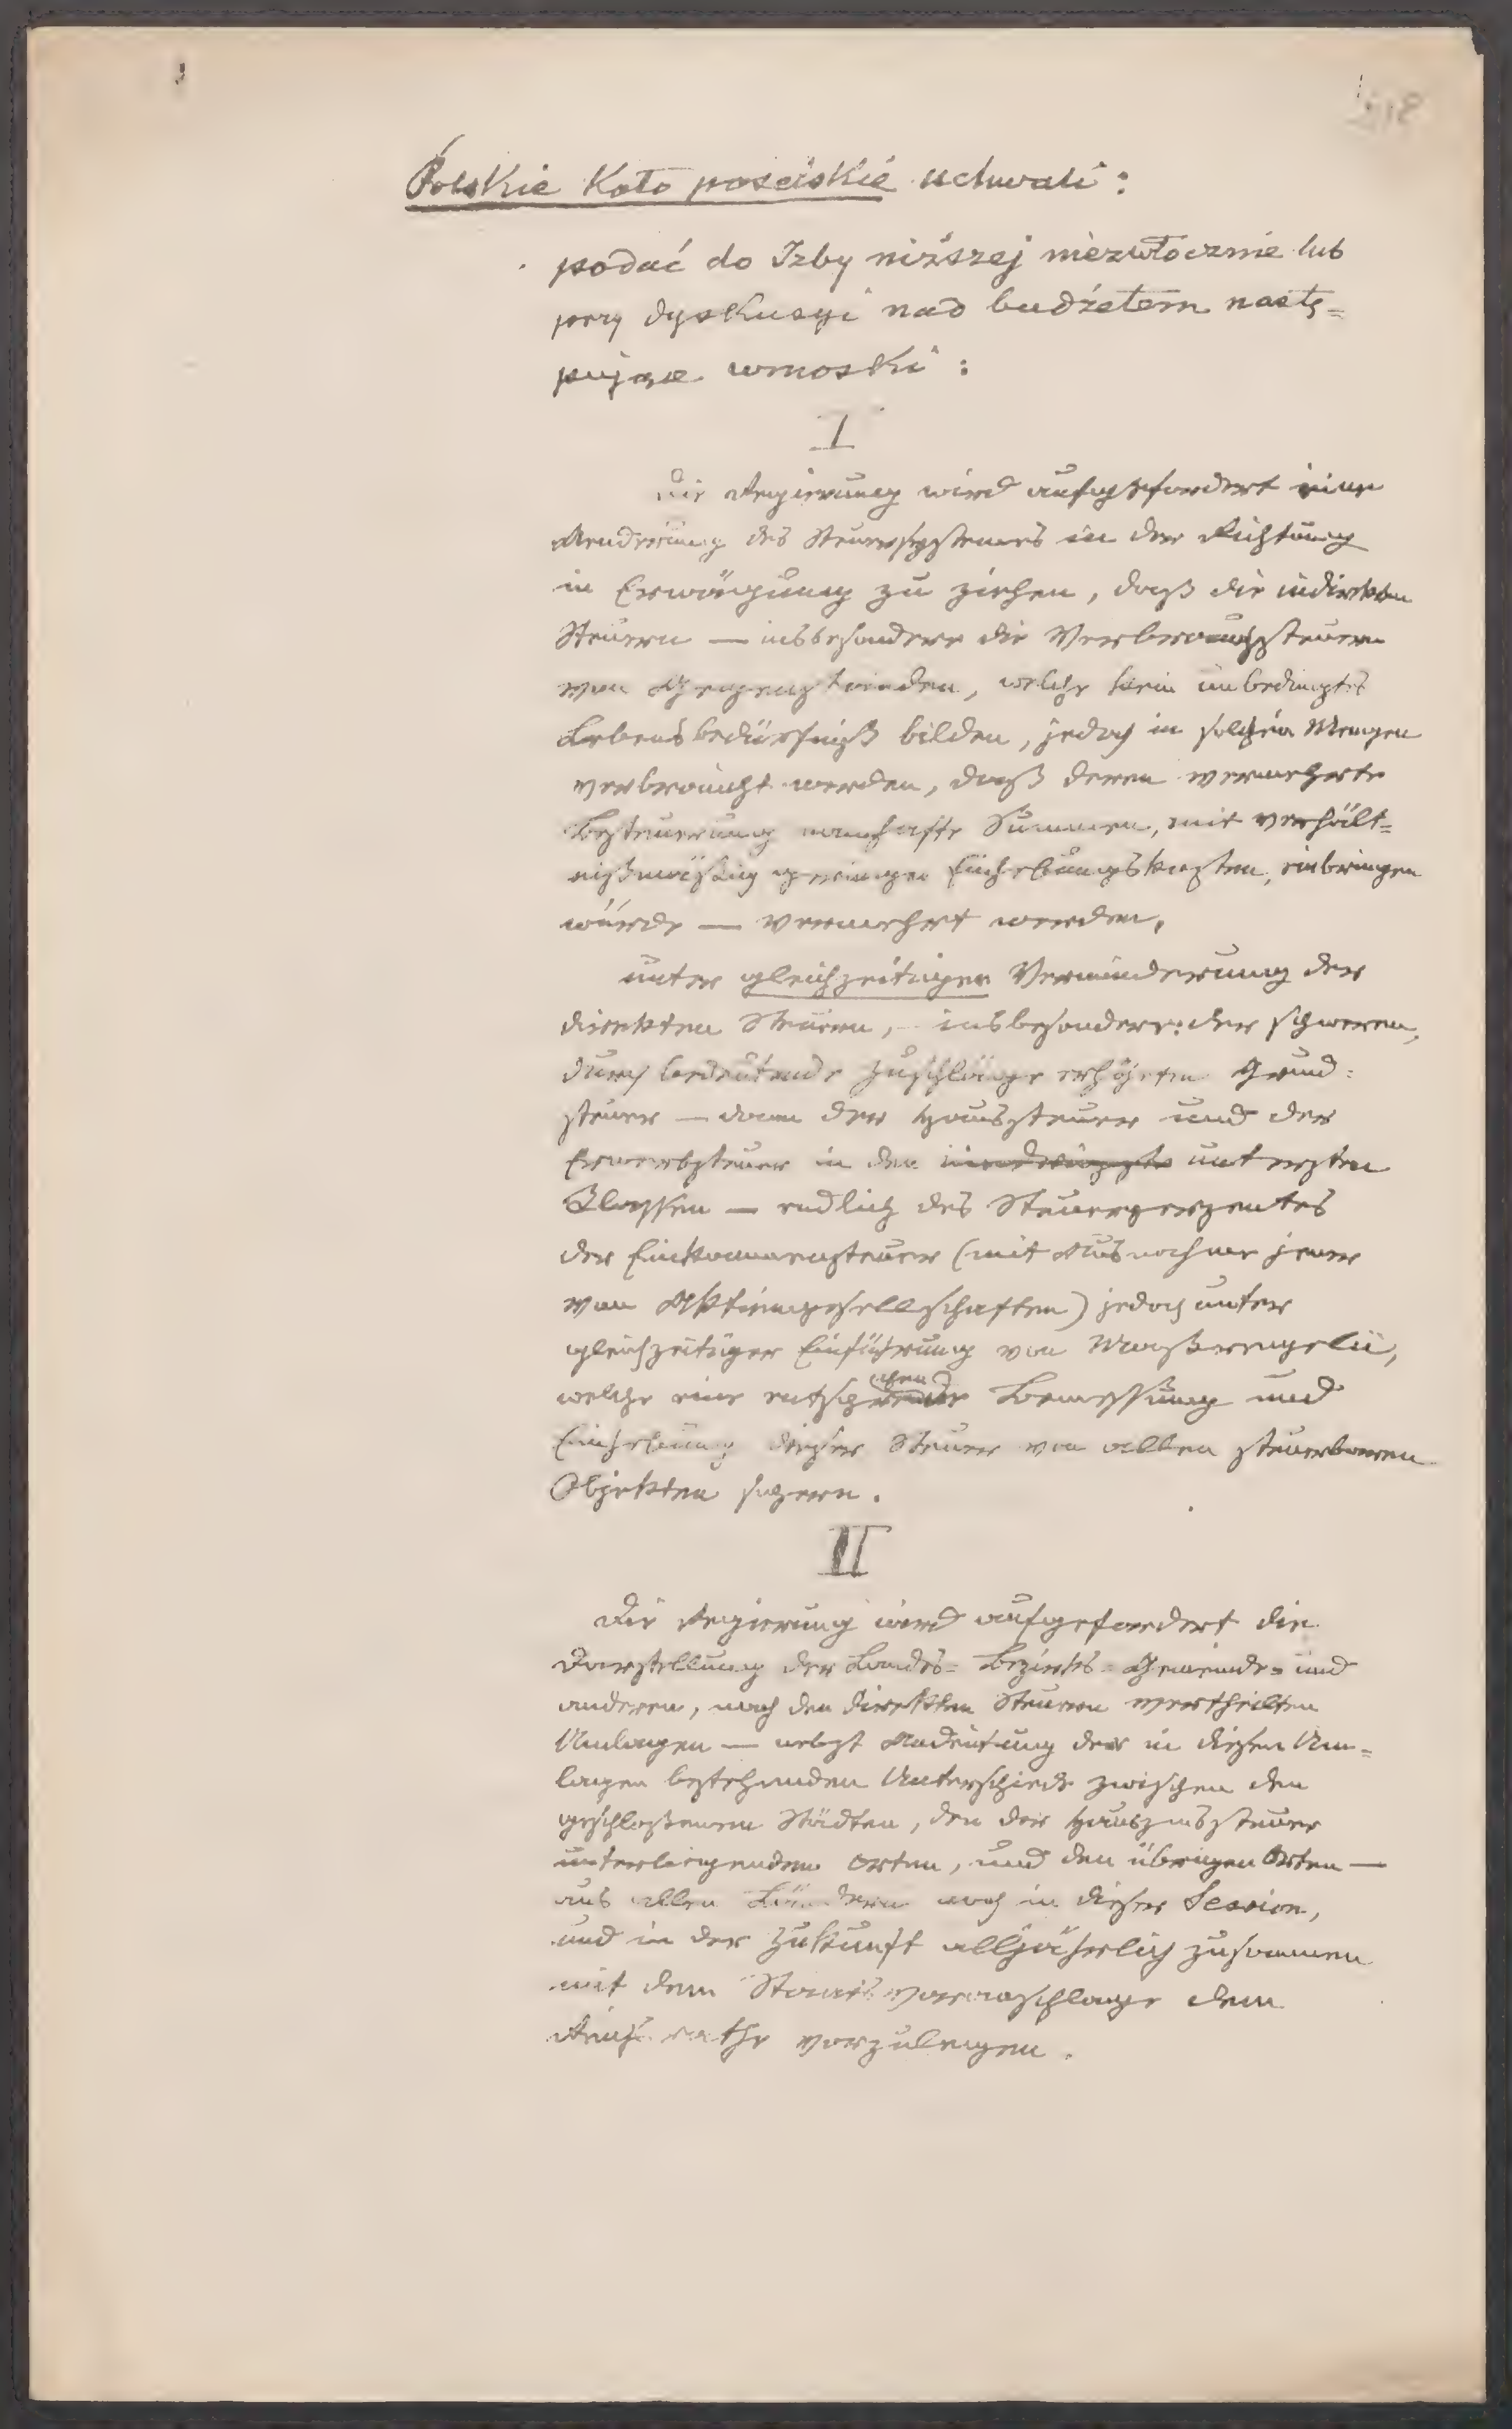 Polskie Koło poselskie uchwali:
podać do Izby niższej niezwłocznie lub
przy dyskusyi nad budżetem nastę=
pujące wnioski:
I
Die Regierung wird aufgefordert eine
Aenderung des Steuersystemes in der Richtung
in Erwägung zu ziehen, daß die indirekten
Steuern — insbesondere die Verbrauchssteuern
von Gegenständen, welche kein unbedingtes
Lebensbedürfniß bilden, jedoch in solchen Mengen
verbraucht werden, daß deren vermehrte
Besteuerung namhafte Summen, mit verhält=
nißmäßig geringen Einhebungskosten, einbringen
würde — vermehrt werden,
unter gleichzeitiger Verminderung der
direkten Steuern, insbesondere: der schweren,
durch bedeutende Zuschläge erhöhten Grund=
steuer — dann der Haussteuer und der
Erwerbsteuer in den untersten
Klassen — endlich des Steuerperzentes
der Einkommensteuer (mit Ausnahme jener
von Aktiengesellschaften) jedoch unter
gleichzeitiger Einführung von Maßregeln,
welche eine entsprechende Bemessung und
Einhebung dieser Steuer von allen steuerbaren
Objekten sichern.
II
Die Regierung wird aufgefordert die
Darstellung der Landes= Bezirks= Gemeinde= und
anderen, nach den direkten Steuern vertheilten
Umlagen — nebst Andeutung der in diesen Um=
lagen bestehenden Unterschiede zwischen den
geschloßenen Städten, den der Hauszinssteuer
unterliegenden Orten, und den übrigen Orten —
aus allen Ländern noch in dieser Session,
und in der Zukunft alljährlich zusammen
mit dem Staatsvoranschlage dem
Reichsrathe vorzulegen.